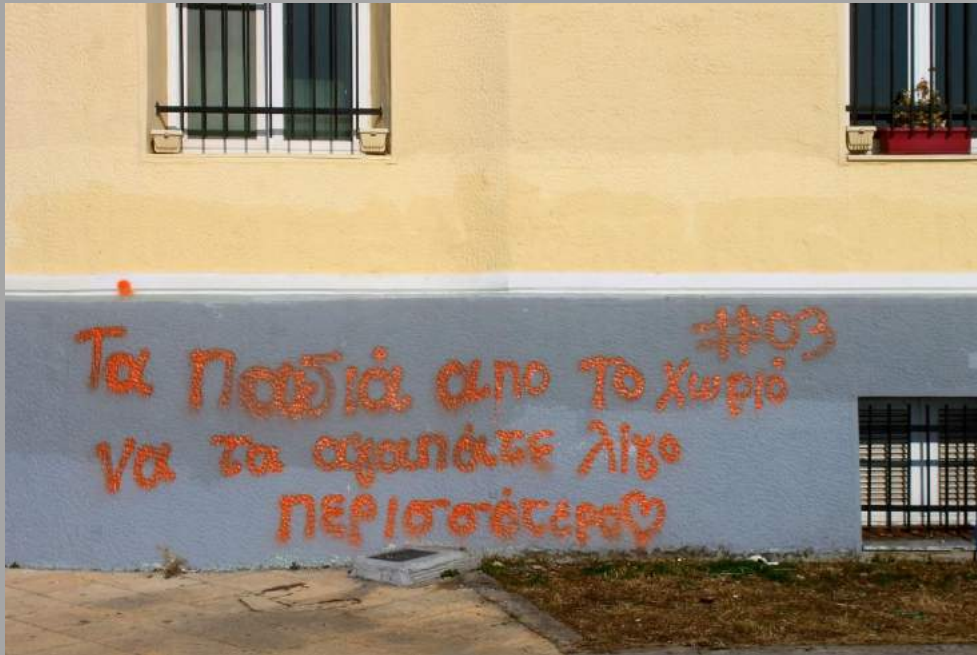 #03
Τα Παδιά απο το χωριό
να τα αγαπάτε λίγο
περισσότερο♡